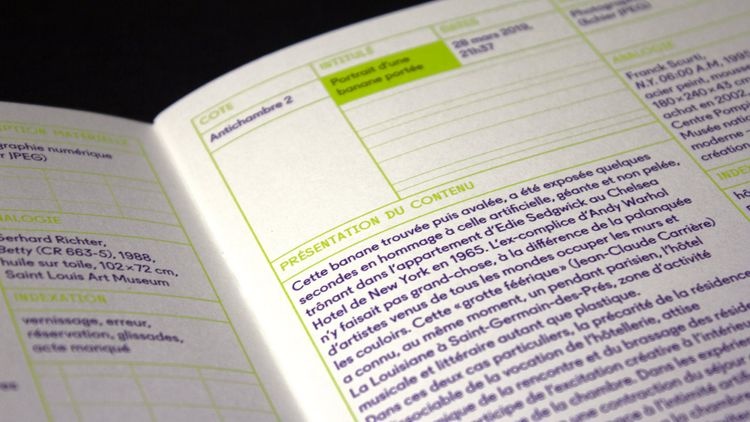 PTION MATÉRIELLE
graphie numérique
r JPEG)
ANALOGIE
Gerhard Richter,
Betty (CR 663-5), 1988,
huile sur toile, 102 × 72 cm,
Saint Louis Art Museum
INDEXATION
vernissage, erreur,
réservation, glissades,
acte manqué
COTE
Antichambre 2
INTITULÉ
Portrait d'une
banane portée
28 mars 2012,
21h37
PRÉSENTATION DU CONTENU
Cette banane trouvée puis avalée, a été exposée quelques
secondes en hommage à celle artificielle, géante et non pelée,
trônant dans l'appartement d'Edie Sedgwick au Chelsea
Hotel de New York en 1965. L'ex-complice d'Andy Warhol
n'y faisait pas grand-chose, à la différence de la palanquée
d'artistes venus de tous les mondes occuper les murs et
les couloirs. Cette « grotte féérique » (Jean-Claude Carrière)
a connu, au même moment, un pendant parisien, l'hôtel
La Louisiane à Saint-Germain-des-Prés, zone d'activité
musicale et littéraire autant que plastique.
Dans ces deux cas particuliers, la précarité de la résidence
dissociable de la vocation de l'hôtellerie, attise
mique de la rencontre et du brassage des rési
participe de l'excitation créative à l'intéri
de la chambre. Dans les expéri
une contraction du séjou
à l'intimité arti
Photograph
(fichier JPEG)
ANALOGIE
Franck Scurti,
N.Y. 06:00 A.M. 199
acier peint, mousse
180 × 240 × 43 c
achat en 2002
Centre Pom
Musée natio
moderne
création
INDE